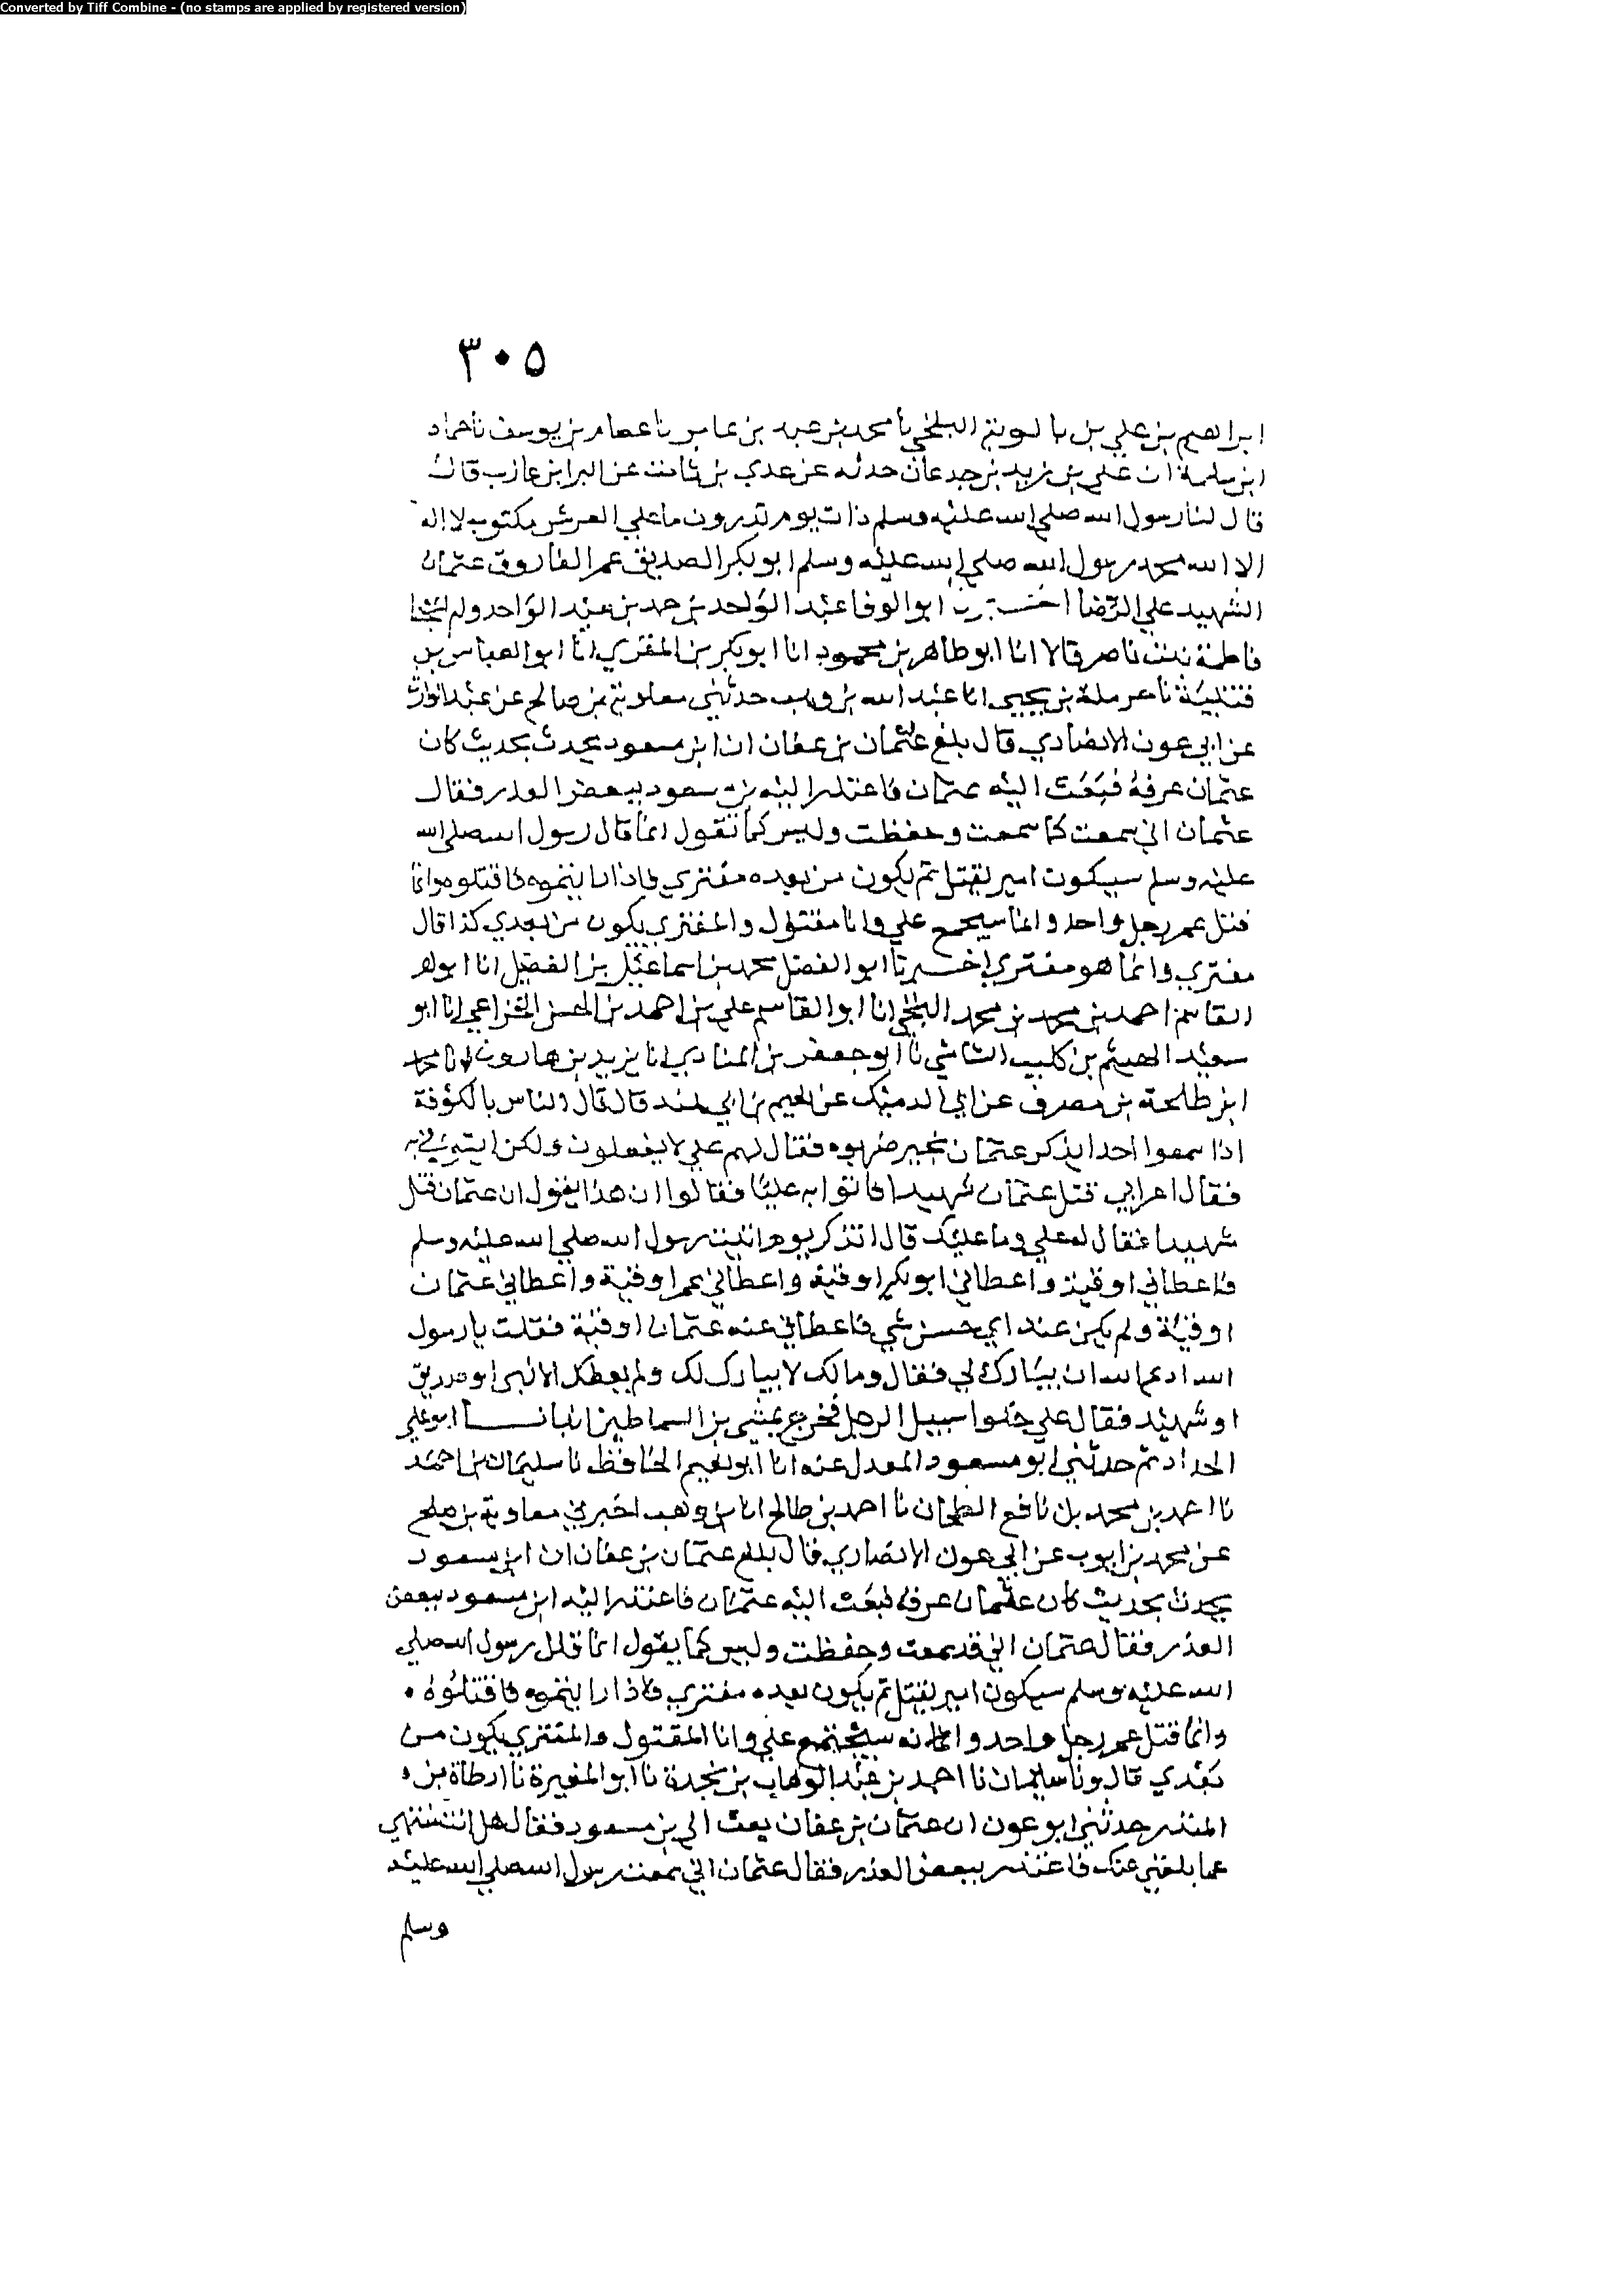 Converted by Tiff Combine - (no stamps are applied by registered version)
٣٠٥
ابراهيم بن علي بن بالويه البلخي نا محمد بن عبد بن عامر نا عصام بن يوسف نا حماد
ابن سلمة ان علي بن زيد بن جدعان حدثه عن عدي بن ثابت عن البرا بن عازب قال
قال لنا رسول الله صلي الله عليه وسلم ذات يوم تدرون ما علي العرش مكتوب لا اله
الا الله محمد رسول الله صلي الله عليه وسلم ابو بكر الصديق عمر الفاروق عثمان
الشهيد علي الرضا اخبرنا ابو الوفا عبد الواحد بن حمد بن عبد الواحد وام
فاطمة بنت ناصر قالا انا ابو طاهر بن محمود انا ابو بكر بن المقري انا ابو العباس بن
قتيبة نا حرملة بن يحيي انا عبد الله بن وهب حدثني معاوية بن صالح عن عبد الوارث
عن ابي عون الانصاري قال بلغ عثمان بن عفان ان ابن مسعود يحدث بحديث كان
عثمان عرفه فبعث اليه عثمان فاعتذر اليه بن مسعود ببعض العذر فقال
عثمان اني سمعت كما سمعت وحفظت وليس كما تقول انما قال رسول الله صلي الله
عليه وسلم سيكون امير يقتل ثم يكون من بعده مفتري فاذا رايتموه فاقتلوه وانما
قتل عمر رجل واحد وانما سيجمع علي وانا مقتول والمفتري يكون من بعدي كذا قال
مفتري وانما هو مفتري اخبرنا ابو الفضل محمد بن اسماعيل بن الفضيل انا ابو
القاسم احمد بن محمد بن محمد البلخي انا ابو القاسم علي بن احمد بن الحسن الخزاعي انا ابو
سعيد الهيثم بن كليب الشاشي نا ابو جعفر بن المنادي انا يزيد بن هارون انا محمد
ابن طلحة بن مصرف عن ابي عن بن ابي هند قال قال الناس بالكوفة
اذا سمعوا احدا يذكر عثمان بخير ضربوه فقال لهم علي لا يفعلون ولكن ايتوني به
فقال اعرابي قتل عثمان شهيدا فاتوا به عليا فقالوا ان هذا يقول ان عثمان قتل
شهيدا فقال له علي وما علمك قال اتذكر يوم اتيت رسول الله صلي الله عليه وسلم
فاعطاني اوقية واعطاني ابو بكر اوقية واعطاني عمر اوقية واعطاني عثمان
اوقية ولم يكن عند ابي حسن شي فاعطاني عنه عثمان اوقية فقلت يا رسول
الله ادع الله ان يبارك لي فقال ومالك لا يبارك لك ولم يعطك الا نبي او صديق
او شهيد فقال علي خلوا سبيل الرجل فخرج يمشي بن السماطين انبانا ابو علي
الحداد ثم حدثني ابو مسعود المعدل عنه انا ابو نعيم الحافظ نا سليمان بن احمد
نا احمد بن محمد بن نافع الطحان نا احمد بن صالح انا بن وهب اخبرني معاوية بن صالح
عن محمد بن ايوب عن ابي عون الانصاري قال بلغ عثمان بن عفان ان ابن مسعود
يحدث بحديث كان عثمان عرفه فبعث اليه عثمان فاعتذر اليه ابن مسعود ببعض
العذر فقال عثمان اني قد سمعت وحفظت وليس كما يقول انما قال رسول الله صلي
الله عليه وسلم سيكون امير يقتل ثم يكون بعده مفتري فاذا رايتموه فاقتلوه
وانما قتل عمر رجل واحد وانه سيجتمع علي وانا المقتول والمفتري يكون من
بعدي قال ونا سليمان نا احمد بن عبد الوهاب بن نجدة نا ابو المغيرة نا ارطاة بن
المنذر حدثني ابو عون ان عثمان بن عفان بعث الي بن مسعود فقال هل انت منتهي
عما بلغني عنك فاعتذر ببعض العذر فقال عثمان اني سمعت رسول الله صلي الله عليه
وسلم